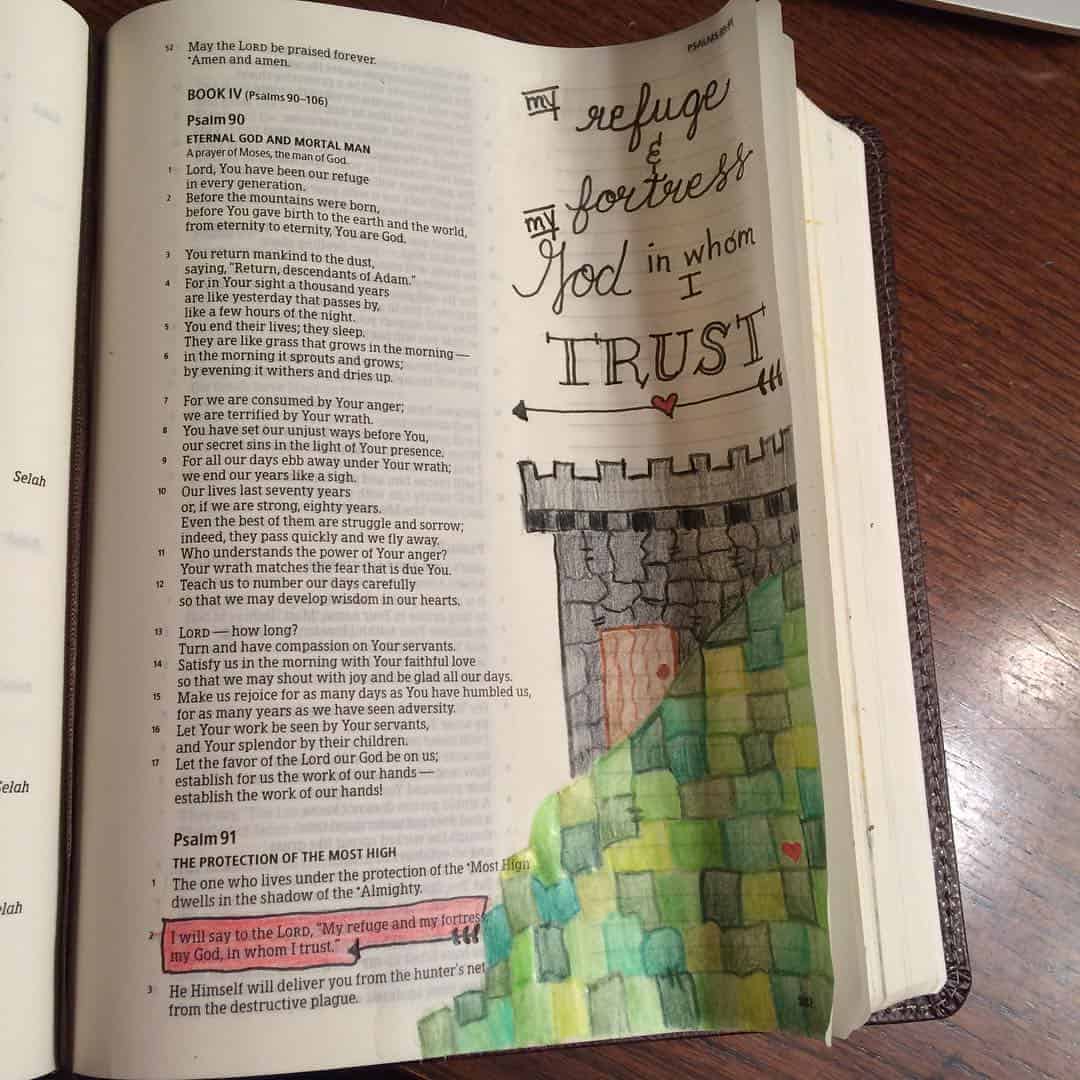 Selah
Selah
elah
52 May the LORD be praised forever.
*Amen and amen.
BOOK IV (Psalms 90–106)
Psalm 90
ETERNAL GOD AND MORTAL MAN
A prayer of Moses, the man of God.
1 Lord, You have been our refuge
in every generation.
2 Before the mountains were born,
before You gave birth to the earth and the world,
from eternity to eternity, You are God.
3 You return mankind to the dust,
saying, "Return, descendants of Adam."
4 For in Your sight a thousand years
are like yesterday that passes by,
like a few hours of the night.
5 You end their lives; they sleep.
They are like grass that grows in the morning —
6 in the morning it sprouts and grows;
by evening it withers and dries up.
7 For we are consumed by Your anger;
we are terrified by Your wrath.
8 You have set our unjust ways before You,
our secret sins in the light of Your presence.
9 For all our days ebb away under Your wrath;
we end our years like a sigh.
10 Our lives last seventy years
or, if we are strong, eighty years.
Even the best of them are struggle and sorrow;
indeed, they pass quickly and we fly away.
11 Who understands the power of Your anger?
Your wrath matches the fear that is due You.
12 Teach us to number our days carefully
so that we may develop wisdom in our hearts.
13 LORD — how long?
Turn and have compassion on Your servants.
14 Satisfy us in the morning with Your faithful love
so that we may shout with joy and be glad all our days.
15 Make us rejoice for as many days as You have humbled us,
for as many years as we have seen adversity.
16 Let Your work be seen by Your servants,
and Your splendor by their children.
17 Let the favor of the Lord our God be on us;
establish for us the work of our hands —
establish the work of our hands!
Psalm 91
THE PROTECTION OF THE MOST HIGH
1 The one who lives under the protection of the *Most High
dwells in the shadow of the *Almighty.
2 I will say to the LORD, "My refuge and my fortress,
my God, in whom I trust."
3 He Himself will deliver you from the hunter's net,
from the destructive plague.
my refuge
&
my fortress
God in whom
I
TRUST